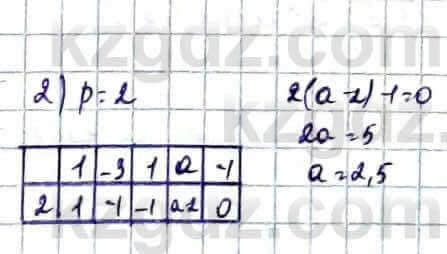 kzgdz.com
2) p = 2
2(a - 2) - 1 = 0
2a = 5
a = 2,5
1 -3 1 a -1
2 1 -1 -1 a-2 0